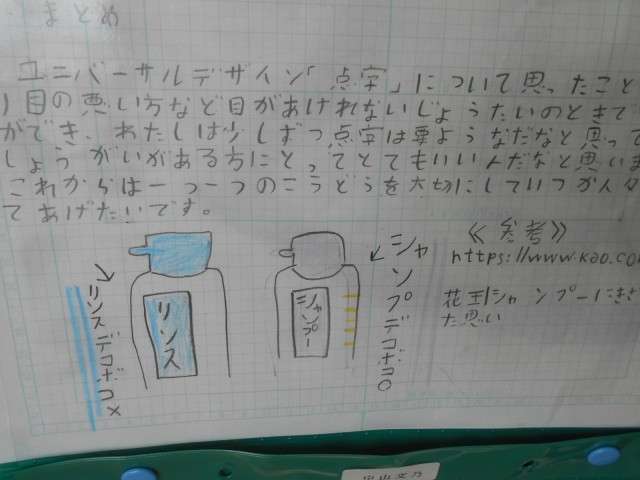 まとめ
ユニバーサルデザイン「点字」について思ったこと
1目の悪い方など目があけれないじょうたいのときで
ができ、わたしは少しずつ点字は要ようなだなと思って
しょうがいがある方にとってとてもいい人だなと思いま
これからは一つ一つのこうどうを大切にしていつか人々
てあげたいです。
リンスデコボコ×
リンス
シャンプー
シャンプデコボコ○
≪参考≫
https://www.kao.com
花王|シャンプーにきさ
た思い